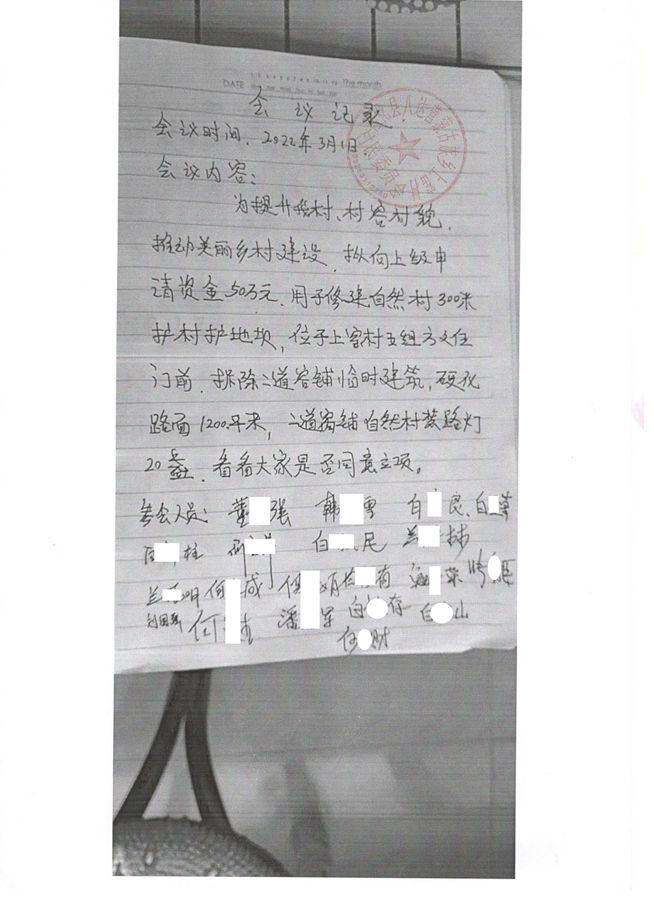 The month
DATE
会议记录
会议时间：2022年3月1日
会议内容：
为提升我村、村容村貌，
推动美丽乡村建设，拟向上级申
请资金50万元，用于修建自然村300米
护村护地坝，位于上窖村五组方文住
门前，拆除二道窖铺临时建筑，硬化
路面1200平米，二道窖铺自然村装路灯
20盏，看看大家是否同意立项。
参会人员：董 张 韩 曹 白 良、白
白 柱 白 民 兰 林
兰 明 何 成 有 荣
何 潘 军 白 存 白 山
何 财